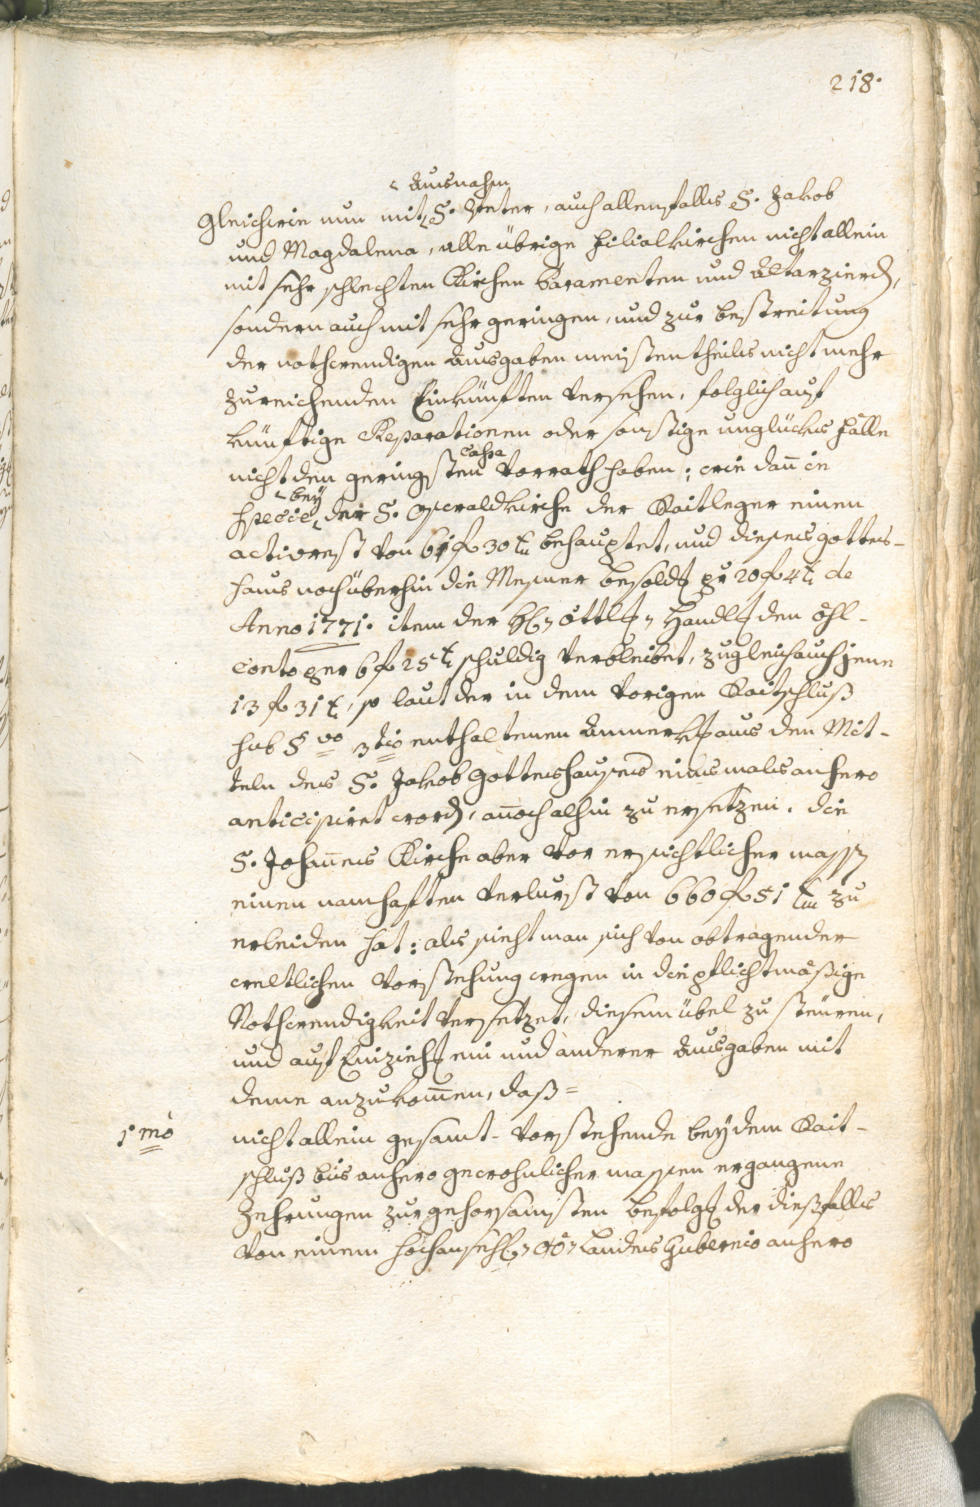 218.
Ausnahm
Gleichwie nun mit S. Peter, auch allenfalls S. Jakob
und Magdalena, alle übrige Filialkirchen nicht allein
mit sehr schlechten Kirchen Paramenten und Altarzierd,
sondern auch mit sehr geringen, und zur bestreitung
der nothwendigen Ausgaben meistentheils nicht mehr
zureichenden Einkünften versehen, folglich auf
künftige Reparationen oder sonstige unglücks Fälle
Cassa
nicht den geringsten Vorrath haben; wie dañ in
bey
specie der S. Oswaldkirche der Raitleger einen
activrest von 61 f 30 kr behauptet, und dieses gottes-
haus noch überhin die Messner besoldg pr 20 f 4 kr de
Anno 1771. item der Handlg den öhl-
conto per 6 f 25 kr schuldig verbleibet, zugleich auch jene
13 f 31 kr, so laut der in dem vorigen Raitschluß
sub § vo 3tio enthaltenen Anmerkg aus den Mit-
teln des S. Jakob Gotteshauses einsmals anhero
anticipiret word, añoch alhin zu ersetzen. die
S. Johañes Kirche aber vor ersichtlicher mass
einen namhaften verlurst von 660 f 51 kr zu
erleiden hat: als sieht man sich von obtragender
weltlichen Vorstehung wegen in die pflichtmäßige
Nothwendigkeit versetzet, diesem übel zu steuren,
und auf Einziehg ein und anderer Ausgaben mit
deme anzukom̃en, daß=
1mo nicht allein gesamt-vorstehende bey dem Rait-
schluß bis anhero gewohnlicher massen ergangene
Zehrungen zur gehorsamsten befolgg der dießfalls
von einem hochansehl. Landes Gubernio anhero